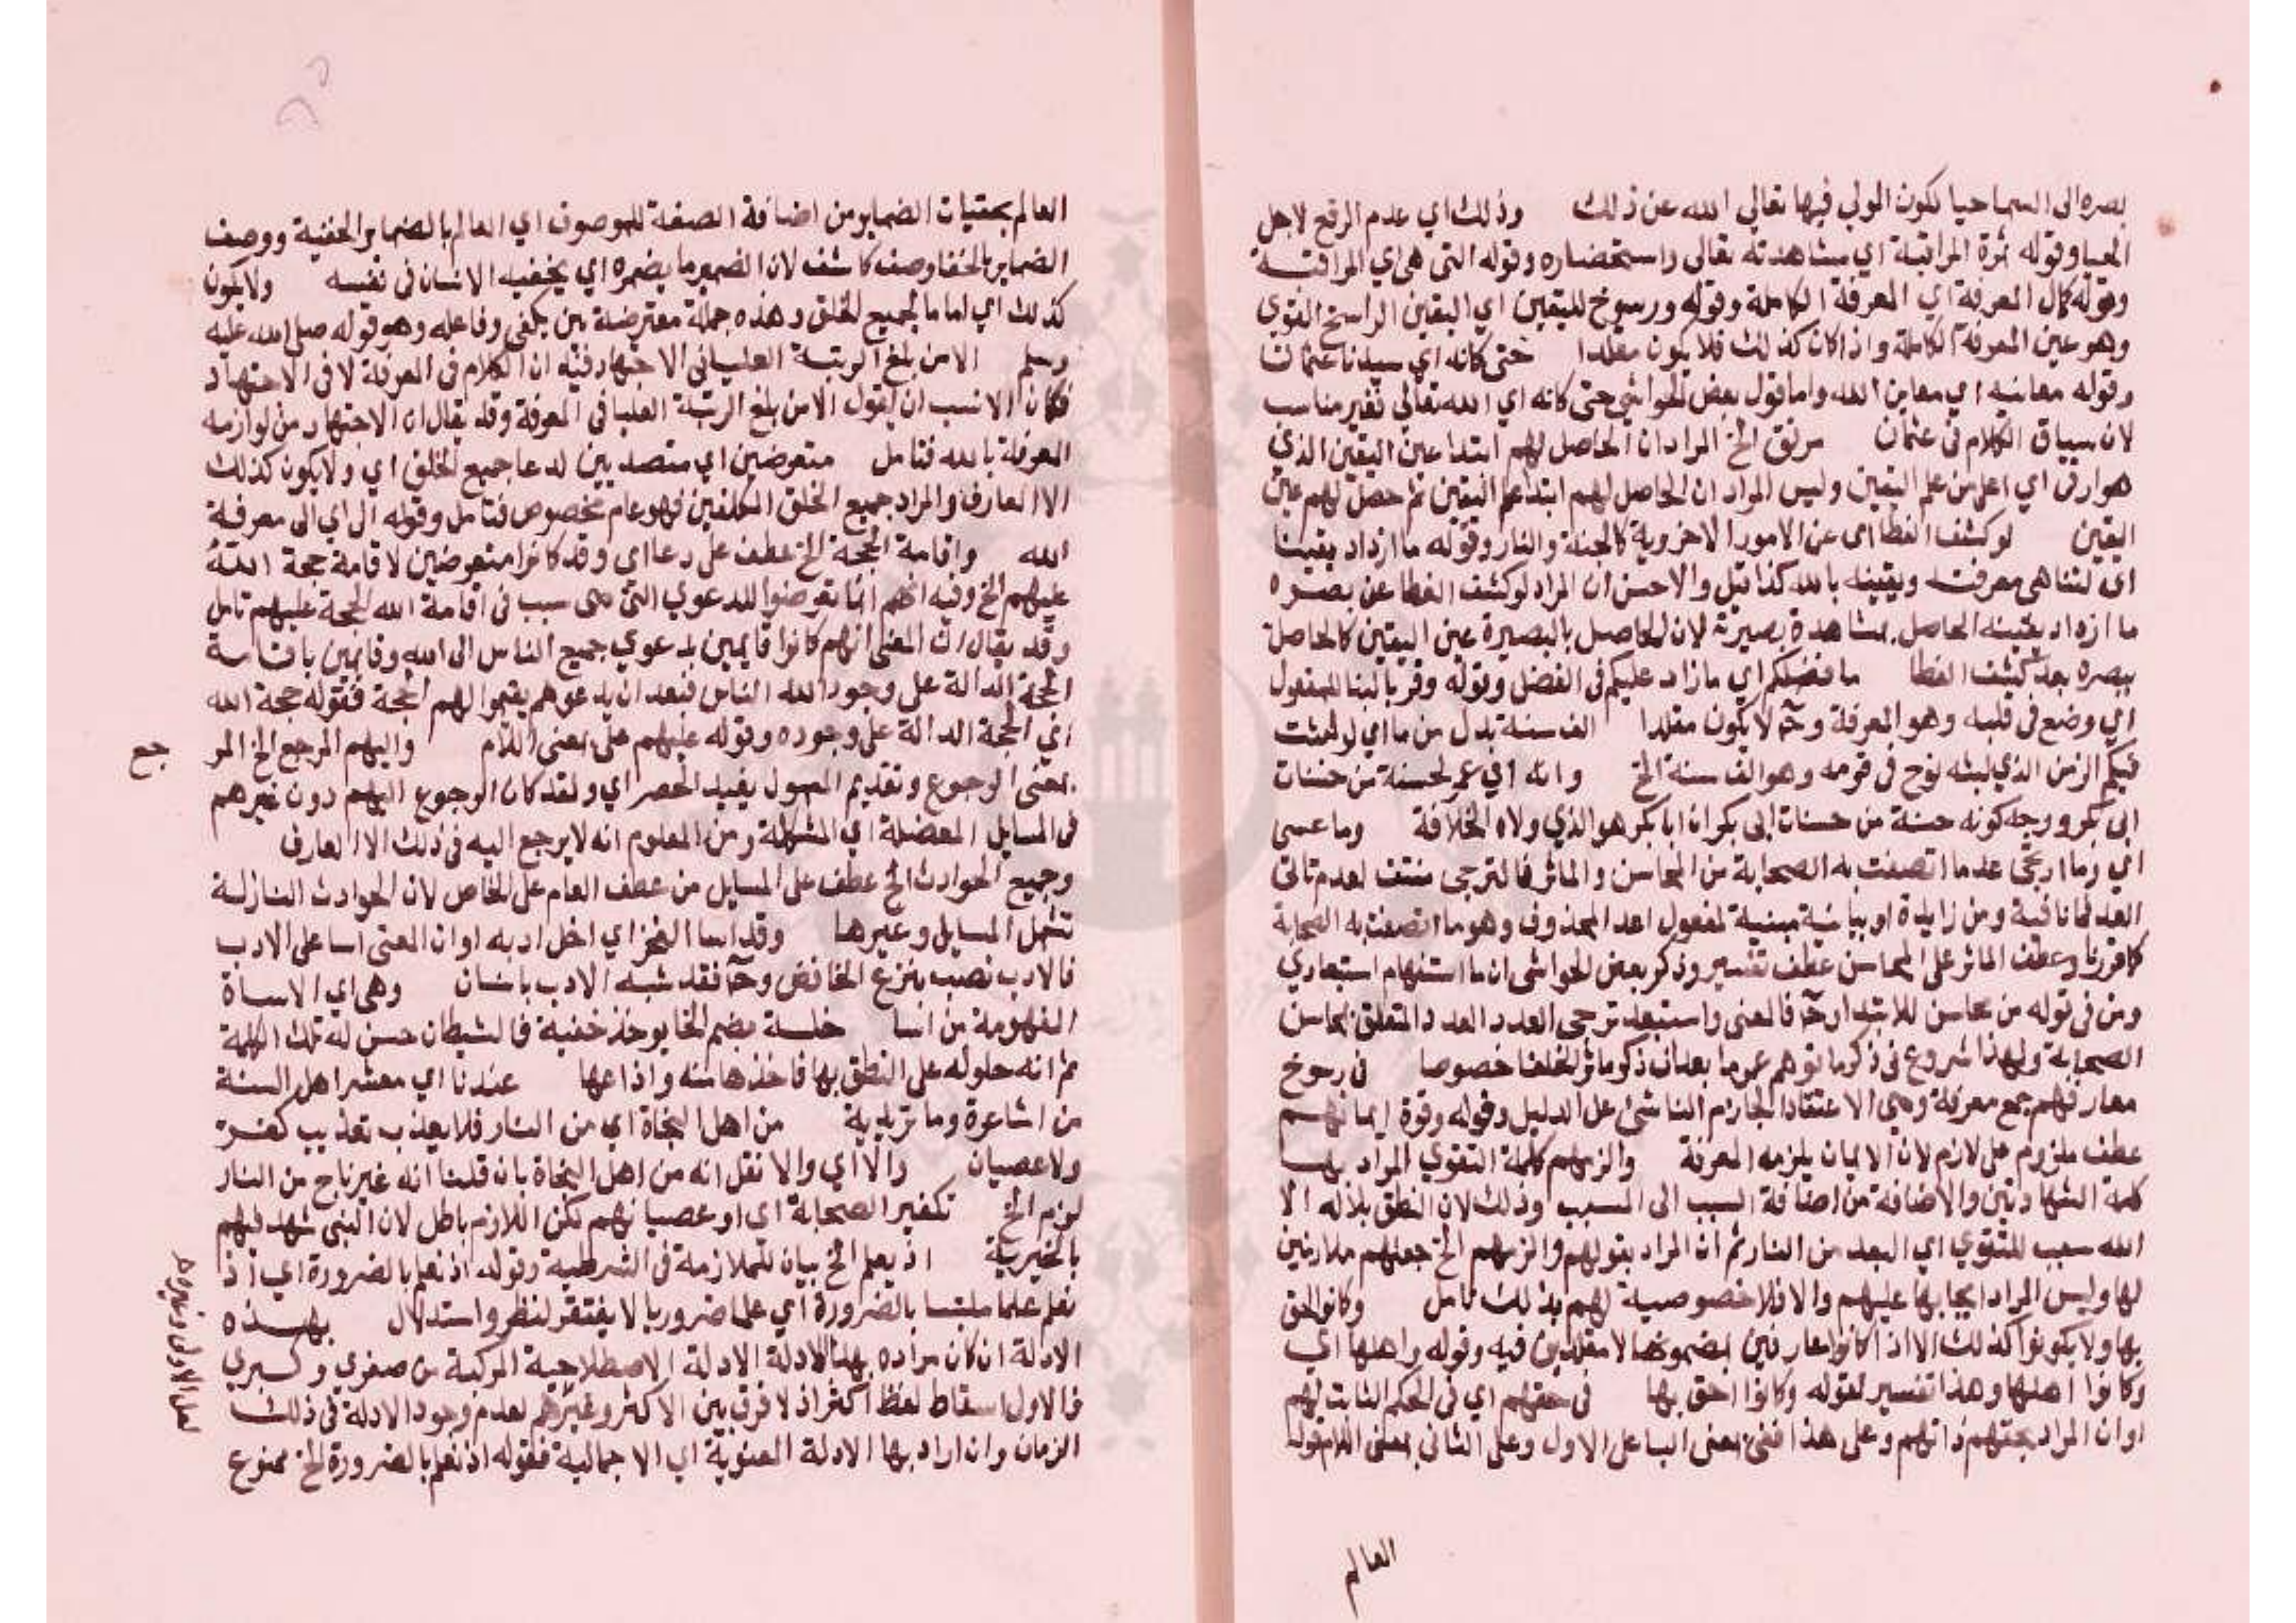 بصره الى السما حيا لكون المولي فيها تعالي الله عن ذلك وذلك اي عدم الرفع لاجل
الحيا وقوله ثمرة المراقبة اي مشاهدته تعالي واستحضاره وقوله التي هي اي المراقبة
وقوله كمال المعرفة اي المعرفة الكاملة وقوله ورسوخ لليقين اي اليقين الراسخ القوي
وهو عين المعرفة الكاملة واذا كان كذلك فلا يكون مقلدا حتى كانه اي سيدنا عثمان
وقوله معاينه اي معاين الله واما قول بعض الحواشي حتى كانه اي الله تعالي فغير مناسب
لان سياق الكلام في عثمان مرتق الخ المراد ان الحاصل لهم ابتدا عين اليقين الذي
هو ارقى اي اعلى من علم اليقين وليس المراد ان الحاصل لهم ابتدا علم اليقين ثم حصل لهم عين
اليقين لو كشف الغطا اي عن الامور الاخروية كالجنة والنار وقوله ما ازداد يقينا
اي لتناهي معرفته ويقينه بالله كذا قيل والاحسن ان المراد لو كشف الغطا عن بصره
ما ازداد يقينه الحاصل بمشاهدة بصيرته لان الحاصل بالبصيرة عين اليقين كالحاصل
ببصره بعد كشف الغطا ما فضلكم اي ما زاد عليكم في الفضل وقوله وقر بالبنا للمفعول
اي وضع في قلبه وهو المعرفة وح لا يكون مقلدا الف سنة بدل من ما اي لو لبثت
فيكم الزمن الذي لبثه نوح في قومه وهو الف سنة الخ وانه اي عمر لحسنة من حسنات
ابي بكر ووجه كونه حسنة من حسنات ابي بكر ان ابا بكر هو الذي ولاه الخلافة وما عسى
اي وما ارتجى عد ما اتصفت به الصحابة من المحاسن والماثر فالترجي منتف لعدم تاتي
العد فما نافية ومن زايدة او بيانية مبينة لمفعول اعد المحذوف وهو ما اتصفت به الصحابة
كما قررنا وعطف الماثر على المحاسن عطف تفسير وذكر بعض الحواشي ان ما استفهام استبعادي
ومن في قوله من محاسن للابتدا وح فالمعنى واستبعد ترجي العدد المتعلق بمحاسن
الصحابة ولهذا شروع في ذكر ماثرهم عموما بعد ان ذكر ماثر الخلفا خصوصا في رسوخ
معارفهم جمع معرفة وهي الاعتقاد الجازم الناشئ عن الدليل وقوله وقوة ايمانهم
عطف ملزوم على لازم لان الايمان يلزمه المعرفة والزمهم كلمة التقوي المراد بها
كلمة الشهادتين والاضافة من اضافة السبب الى المسبب وذلك لان النطق بلا اله الا
الله سبب للتقوي اي البعد من النار ثم ان المراد بقولهم والزمهم الخ جعلهم ملازمين
لها وليس المراد ايجابها عليهم والا فلا خصوصية لهم بذلك تامل وكانوا احق
بها ولا يكونوا كذلك الا اذا كانوا عارفين بمضمونها لا مقلدين فيه وقوله واهلها اي
وكانوا اهلها وهذا تفسير لقوله وكانوا احق بها في حقهم اي في الحكم الثابت لهم
او ان المراد بحقهم ذاتهم وعلى هذا ففي بمعنى البا على الاول وعلى الثاني بمعنى اللام قوله
العالم
العالم بخفيات الضماير من اضافة الصفة للموصوف اي العالم بالضماير الخفية ووصف
الضماير بالخفا وصف كاشف لان الضمير ما يضمره اي يخفيه الانسان في نفسه ولا يكون
كذلك اي اماما لجميع الخلق وهذه جملة معترضة بين يكفي وفاعله وهو قوله صلى الله عليه
وسلم الا من بلغ الرتبة العليا في الاجتهاد فيه ان الكلام في المعرفة لا في الاجتهاد
فكان الانسب ان يقول الا من بلغ الرتبة العليا في المعرفة وقد يقال ان الاجتهاد من لوازمه
المعرفة بالله فتامل متعرضين اي متصديين لدعا جميع الخلق اي ولا يكون كذلك
الا العارف والمراد جميع الخلق المكلفين فهو عام مخصوص فتامل وقوله الى اي الى معرفة
الله واقامة الحجة الخ عطف على دعا اي وقد كانوا متعرضين لاقامة حجة الله
عليهم الخ وفيه انهم انما تعرضوا للدعوي التي هي سبب في اقامة الله الحجة عليهم تامل
وقد يقال ان المعنى انهم كانوا قايمين بدعوي جميع الناس الى الله وقايمين باقامة
الحجة الدالة على وجود الله الناس فبعد ان يدعوهم يقيموا لهم الحجة فقوله حجة الله
اي الحجة الدالة على وجوده وقوله عليهم على بمعنى اللام واليهم المرجع الخ المر
جع
بمعنى الرجوع وتقديم المعمول يفيد الحصر اي ولقد كان الرجوع اليهم دون غيرهم
في المسايل المعضلة اي المشكلة ومن المعلوم انه لا يرجع اليه في ذلك الا العارف
وجميع الحوادث الخ عطف على المسايل من عطف العام على الخاص لان الحوادث النازلة
تشمل المسايل وغيرها وقد اسا الفخر اي اخل ادبه او ان المعنى اسا على الادب
فالادب نصب بنزع الخافض وح فقد شبه الادب بانسان وهي اي الاساة
المفهومة من اسا خلسة بضم الخا يوخذ خفية فالشيطان حسن له تلك الكلمة
ثم انه حلوله على النطق بها فاخذها منه واذاعها عندنا اي معشر اهل السنة
من اشاعرة وماتريدية من اهل النجاة اي من النار فلا يعذب تعذيب كفر
ولا عصيان والا اي والا نقل انه من اهل النجاة بان قلنا انه غير ناج من النار
لزم الخ تكفير الصحابة اي او عصيانهم لكن اللازم باطل لان النبي شهد فيهم
بالخيرية اذ يعلم الخ بيان للملازمة في الشرطية وقوله اذ نعلم بالضرورة اي اذ
نعلم علما ملتبسا بالضرورة اي علما ضروريا لا يفتقر لنظر واستدلال بهذه
الادلة ان كان مراده بهذا الادلة الادلة الاصطلاحية المركبة من صغري وكبري
فالاول اسقاط لفظ اكثر اذ لا فرق بين الاكثر وغيرهم لعدم وجود الادلة في ذلك
الزمان وان اراد بها الادلة المعنوية اي الاجمالية فقوله اذ نعلم بالضرورة الخ ممنوع